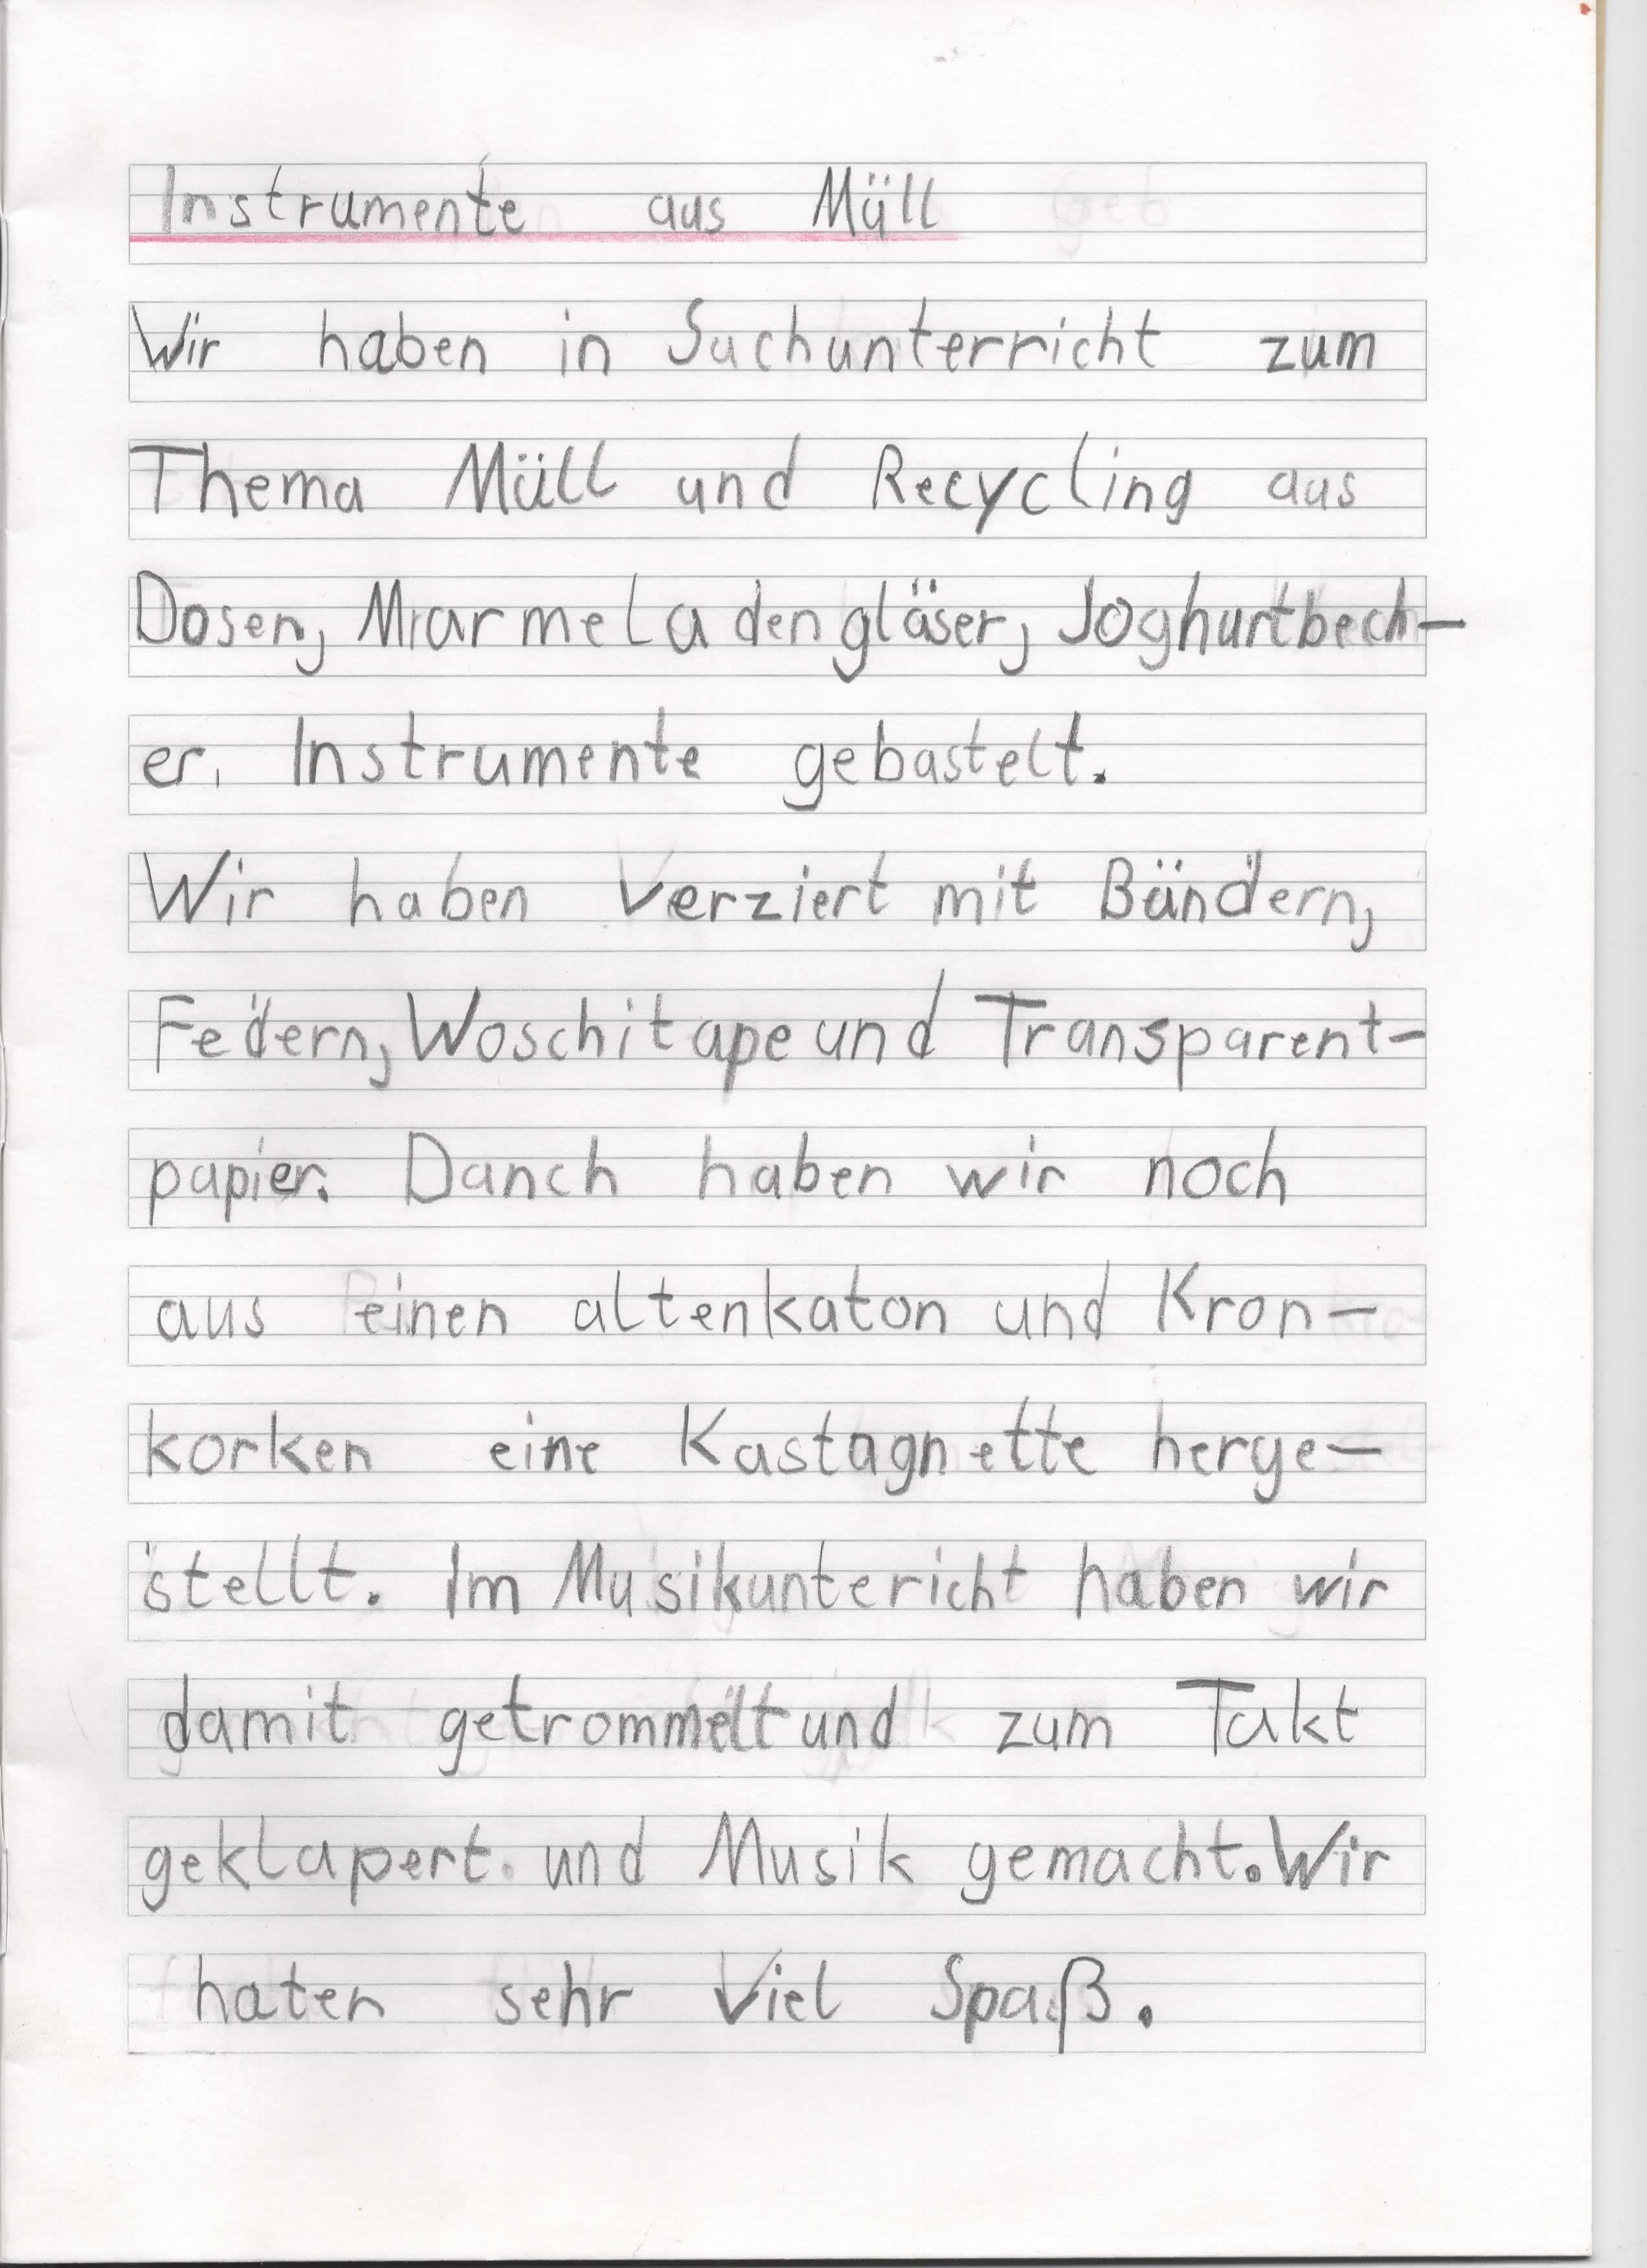 Instrumente aus Müll
Wir haben in Sachunterricht zum
Thema Müll und Recycling aus
Dosen, Marmeladengläser, Joghurtbech-
er. Instrumente gebastelt.
Wir haben Verziert mit Bändern,
Federn, Woschitape und Transparent-
papier. Danch haben wir noch
aus einen altenkaton und Kron-
korken eine Kastagnette herge-
stellt. Im Musikuntericht haben wir
damit getrommelt und zum Takt
geklapert. und Musik gemacht. Wir
haten sehr Viel Spaß.